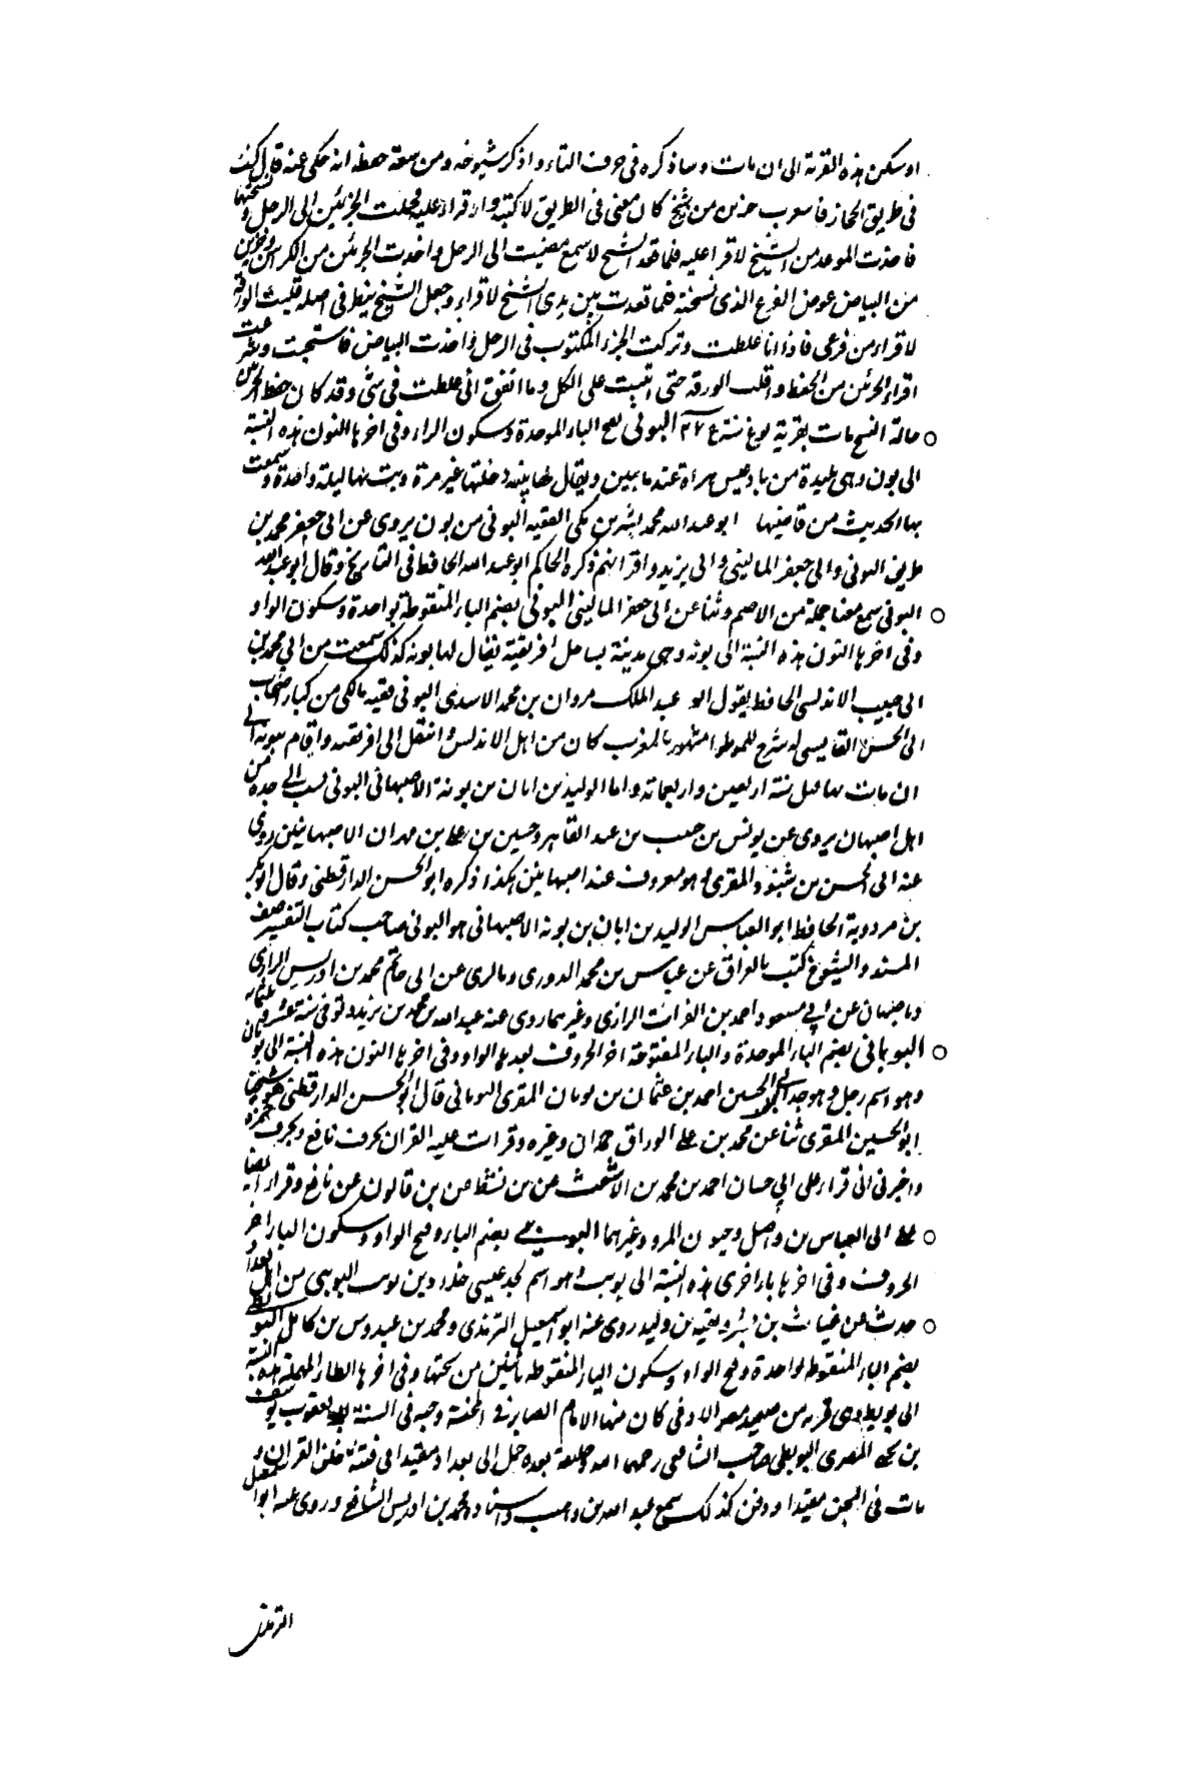 او سكن هذه القرية الى ان مات وساذكره فى حرف التاء واذكر شيوخه ومن سعة حفظه انه حكى عنه قال كنت
فى طريق الحجاز فاستعرت جزئين من شيخ كان معنى فى الطريق لاكتبه واقراء عليه فجعلت الجزئين الى الرحل ونسختهما
فاخذت الموعد من الشيخ لاقرا عليه فلما قعد الشيخ لاسمع مضيت الى الرحل واخذت الجزئين من الكراس وجزئين
من البياض عوض الفرع الذى نسخته فلما قعدت بين يدى الشيخ لاقراء وجعل الشيخ ينظر فى اصله قلبت الورقة
لاقراء من فرعى فاذا انا غلطت وتركت الجزء المكتوب فى الرحل واخذت البياض فاستحييت وشرعت
اقراء الجزئين من الحفظ واقلب الورقة حتى اتيت على الكل وما اتفق انى غلطت فى شئ وقد كان حفظ الجزئين
حالة النسخ مات بقرية بوغ سنة البونى بفتح الباء الموحدة وسكون الراء وفى اخرها النون هذه النسبة
الى بون وهى بليدة من بادغيس هراة عند بامئين ويقال لها ببنه دخلتها غير مرة وبت بها ليلة واحدة وسمعت
بها الحديث من قاضيها ابو عبد الله محمد بن بشر بن بكى الفقيه البونى من بون يروى عن ابى جعفر محمد بن
طريف البونى وابى جعفر المالينى وابى يزيد واقرانهم ذكره الحاكم ابو عبد الله الحافظ فى التاريخ وقال ابو عبد الله
البونى سمع معنا جملة من الاصم وثنا عن ابى جعفر المالينى البونى بضم الباء المنقوطة بواحدة وسكون الواو
وفى اخرها النون هذه النسبة الى بونه وهى مدينة بساحل افريقية يقال لها بونه كذلك سمعت من ابى محمد بن
ابى حبيب الاندلسى الحافظ يقول ابو عبد الملك مروان بن محمد الاسدى البونى فقيه مالكى من كبار اصحاب
ابى الحسن القابسى له شرح للموطو امشهور بالمغرب كان من اهل الاندلس وانتقل الى افريقيه واقام ببونة الى
ان مات بها قبل سنة اربعين واربعمائة واما الوليد بن ابان بن بونة الاصبهانى البونى نسب الى جده من
اهل اصبهان يروى عن يونس بن حبيب بن عبد القاهر وحسين بن على بن مهران الاصبهانيين روى
عنه ابى الحسن بن شنبوذ المقرى وهو معروف عند اصبهانيين هكذا ذكره ابو الحسن الدارقطنى وقال ابو بكر
بن مردوية الحافظ ابو العباس الوليد بن ابان بن بونة الاصبهانى هو البونى صاحب كتاب التفسير صنف
المسند والشيوخ كتب بالعراق عن عباس بن محمد الدورى وبالرى عن ابى حاتم محمد بن ادريس الرازى
وباصبهان عن ابى مسعود احمد بن الفرات الرازى وغيرهما روى عنه عبد الله بن محمد بن يزيد وتوفى سنة عشر وثلثمائه
البويانى بضم الباء الموحدة والياء المفتوحة اخر الحروف بعدها الواو وفى اخرها النون هذه النسبة الى بويان
وهو اسم رجل وهو جد ابى الحسين احمد بن عثمان بن بويان المقرى البويانى قال ابو الحسن الدارقطنى هو شيخنا
ابو الحسين المقرى ثنا عن محمد بن على الوراق حمدان وغيره وقرات عليه القران بحرف نافع وبحرف حمزه
واخبرنى انى قراء على ابى حسان احمد بن محمد بن الاشعث عن بن نشيط عن بن قالون عن نافع وقراء ايضا
على ابى العباس بن واصل وحيون المرو وغيرهما البويبى بضم الباء وفتح الواو وسكون الياء اخر
الحروف وفى اخرها باء اخرى هذه النسبة الى بويب وهو اسم لجد عيسى خلاد بن بويب البويبى من اهل بغداد
حدث عن غياث بن بشر وبقيه بن وليد روى عنه ابو اسمعيل الترمذى ومحمد بن عبدوس بن كامل البويطى
بضم الباء المنقوطه بواحدة وفتح الواو وسكون الياء المنقوطه باثنين من تحتها وفى اخرها الطاء المهملة هذه النسبة
الى بويط وهى قريه من صعيد مصر الادنى كان منها الامام الصابر فى المحنة وجيه فى السنة ابو يعقوب يوسف
بن يحيى المصرى البويطى صاحب الشافعى رحمها الله وخليفة بعده حمل الى بغداد مقيدا فى فتنة خلق القران و
مات فى السجن مقيدا ودفن كذلك سمع عبد الله بن وهب واستاده محمد بن ادريس الشافعى وروى عنه ابو اسمعيل
الترمذى